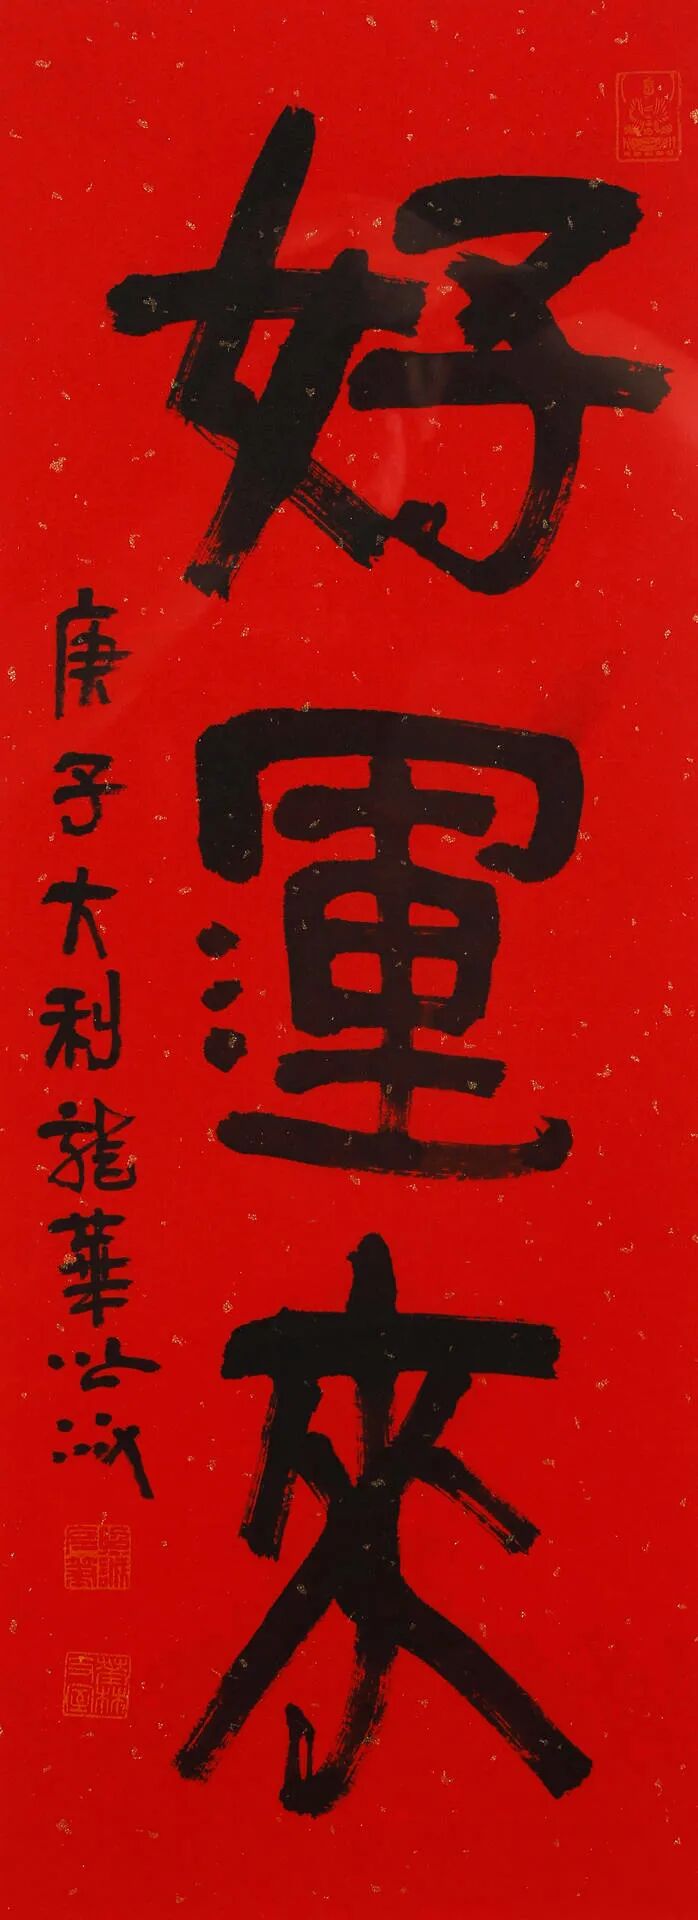 好運來
庚子大利龍華照誠